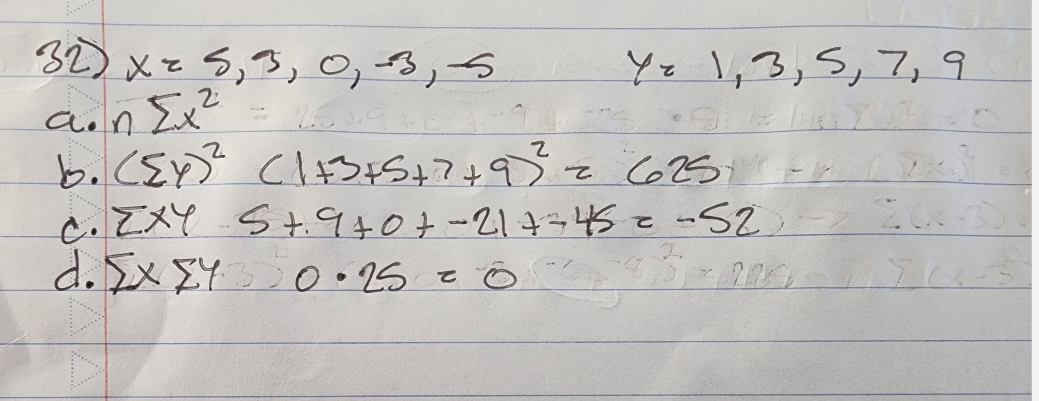 32) x = 5, 3, 0, -3, -5 Y = 1, 3, 5, 7, 9
a. n Σx²
b. (ΣY)² (1+3+5+7+9)² = 625
c. ΣXY 5+9+0+-21+-45 = -52
d. ΣX ΣY 0 • 25 = 0